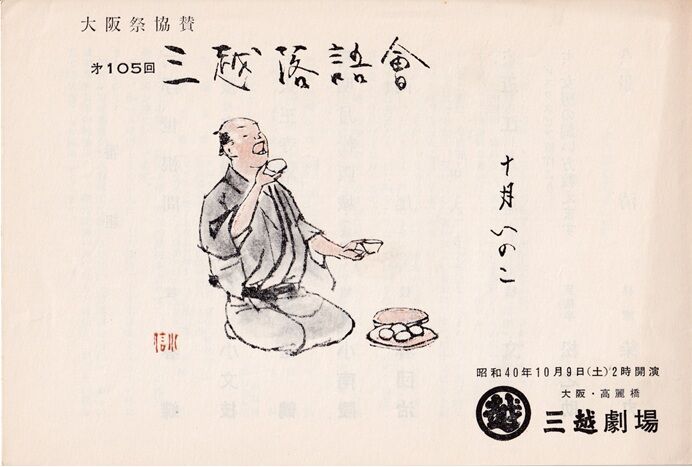 大阪祭協賛
才105回 三越落語會
十月 いのこ
昭和40年10月9日(土)2時開演
大阪・高麗橋
越 三越劇場
小信
小文枝
小南陵
団治